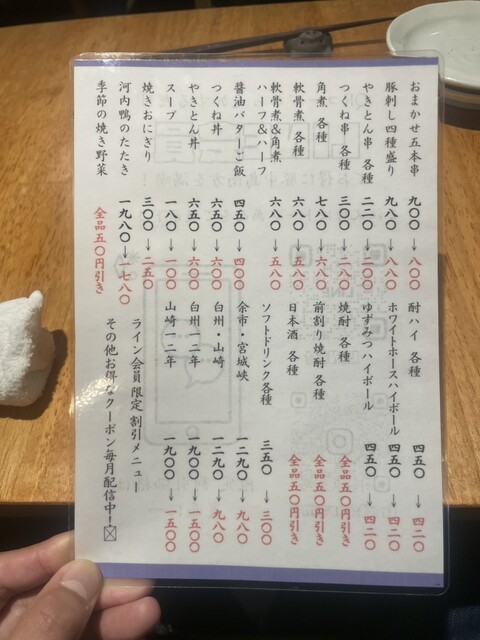 おまかせ五本串 九〇〇→八〇〇
豚刺し四種盛り 九八〇→八八〇
やきとん串 各種 二二〇→二〇〇
つくね串 各種 三〇〇→二八〇
角煮 各種 七八〇→六八〇
軟骨煮 各種 六八〇→五八〇
軟骨煮&角煮
ハーフ&ハーフ 六八〇→五八〇
醤油バターご飯 四五〇→四〇〇
つくね丼 六五〇→六〇〇
やきとん丼 六五〇→六〇〇
スープ 一八〇→一〇〇
焼きおにぎり 三〇〇→二五〇
河内鴨のたたき 一九八〇→一七八〇
季節の焼き野菜 全品五〇円引き
酎ハイ 各種 四五〇→四二〇
ホワイトホースハイボール 四五〇→四二〇
ゆずみつハイボール 四五〇→四二〇
焼酎 各種 全品五〇円引き
前割り焼酎 各種 全品五〇円引き
日本酒 各種 全品五〇円引き
ソフトドリンク各種 三五〇→三〇〇
余市・宮城峡 一二九〇→九八〇
白州・山崎 一二九〇→九八〇
白州一二年 一九〇〇→一五〇〇
山崎一二年 一九〇〇→一五〇〇
ライン会員限定割引メニュー
その他お得なクーポン毎月配信中!